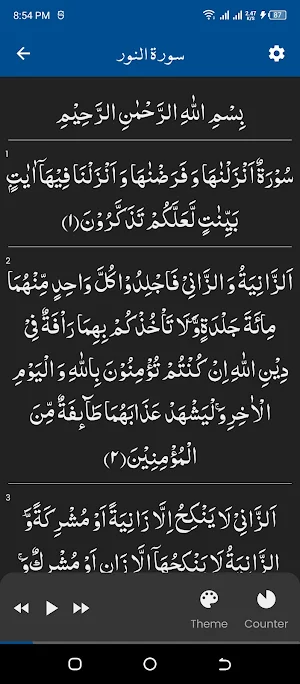 8:54 PM 2.47 K/s 87
سورة النور
بِسْمِ اللّٰهِ الرَّحْمٰنِ الرَّحِیْمِ
1
سُوْرَةٌ اَنْزَلْنٰهَا وَ فَرَضْنٰهَا وَ اَنْزَلْنَا فِیْهَاۤ اٰیٰتٍۭ
بَیِّنٰتٍ لَّعَلَّكُمْ تَذَكَّرُوْنَ(۱)
2
اَلزَّانِیَةُ وَ الزَّانِیْ فَاجْلِدُوْا كُلَّ وَاحِدٍ مِّنْهُمَا
مِائَةَ جَلْدَةٍ۪-وَّ لَا تَاْخُذْكُمْ بِهِمَا رَاْفَةٌ فِیْ
دِیْنِ اللّٰهِ اِنْ كُنْتُمْ تُؤْمِنُوْنَ بِاللّٰهِ وَ الْیَوْمِ
الْاٰخِرِۚ-وَ لْیَشْهَدْ عَذَابَهُمَا طَآىٕفَةٌ مِّنَ
الْمُؤْمِنِیْنَ(۲)
3
اَلزَّانِیْ لَا یَنْكِحُ اِلَّا زَانِیَةً اَوْ مُشْرِكَةً٘-وَّ
الزَّانِیَةُ لَا یَنْكِحُهَاۤ اِلَّا زَانٍ اَوْ مُشْرِكٌۚ-وَ
Theme Counter